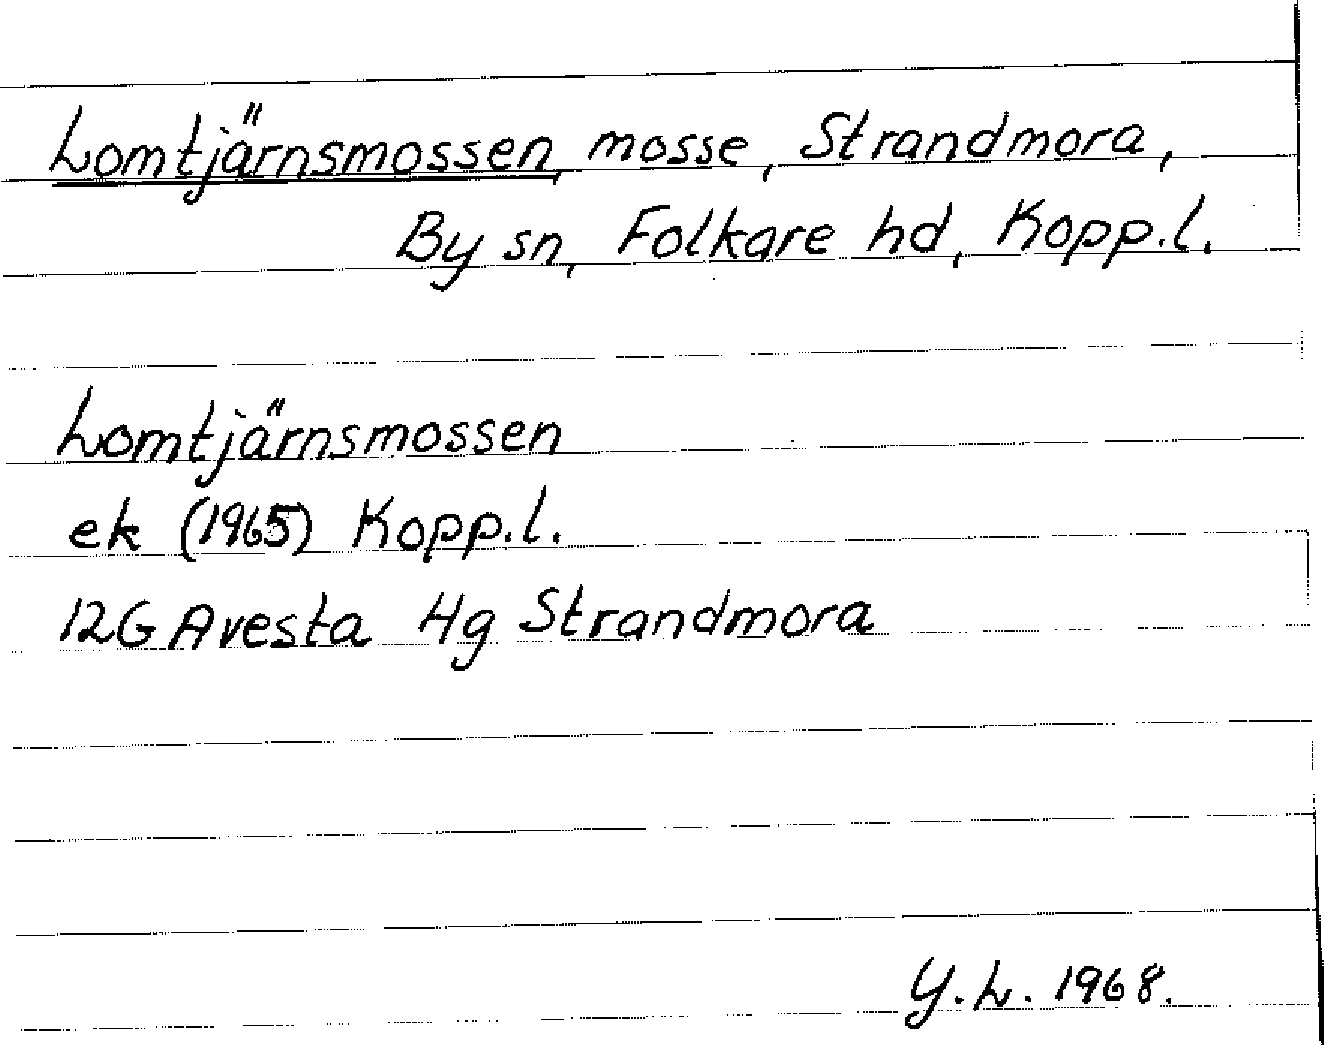 Lomtjärnsmossen, mosse, Strandmora,
By sn, Folkare hd, Kopp.l.
Lomtjärnsmossen
ek (1965) Kopp.l.
12G Avesta 4g Strandmora
Y.L. 1968.